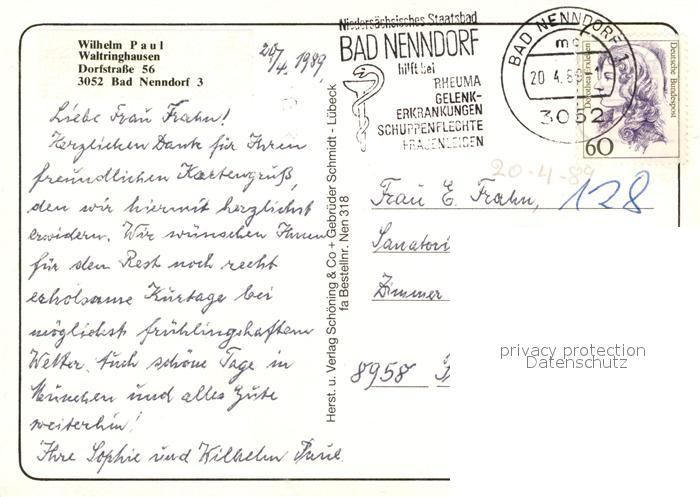 Wilhelm Paul
Waltringhausen
Dorfstraße 56
3052 Bad Nenndorf 3
20/4. 1989
Liebe Frau Frahn!
Herzlichen Dank für Ihren
freundlichen Kartengruß,
den wir hiermit herzlichst
erwidern. Wir wünschen Ihnen
für den Rest noch recht
erholsame Kurtage bei
möglichst frühlingshaftem
Wetter. Auch schöne Tage in
München und alles Gute
weiterhin!
Ihre Sophie und Wilhelm Paul.
Herst. u. Verlag Schöning & Co + Gebrüder Schmidt - Lübeck
fa Bestellnr. Nen 318
Niedersächsisches Staatsbad
BAD NENNDORF
hilft bei
RHEUMA
GELENK-
ERKRANKUNGEN
SCHUPPENFLECHTE
FRAUENLEIDEN
BAD NENNDORF 1
mc
20.4.89
3052
Deutsche Bundespost
Dorothea Erxleben
60
20-4-89
Frau E. Frahn,
128
Sanatori
Zimmer
8958
privacy protection
Datenschutz